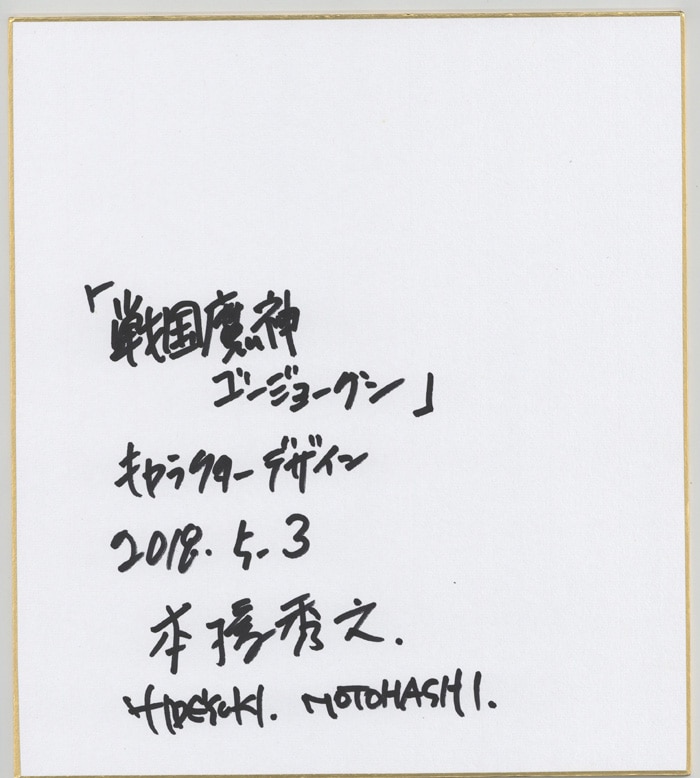 「戦国魔神
ゴーショーグン」
キャラクターデザイン
2018. 5. 3
本橋秀之.
HIDEYUKI. MOTOHASHI.